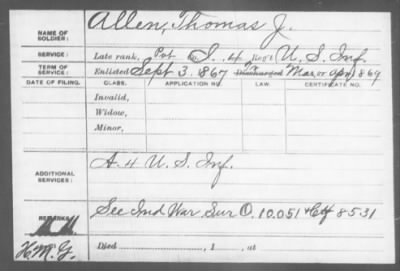 NAME OF SOLDIER: Allen, Thomas J.
SERVICE: Late rank, Pvt Co. I. 4 Reg't U. S. Inf.
TERM OF SERVICE: Enlisted Sept 3, 1867 Discharged Mar, or Apr, 1869
DATE OF FILING. CLASS. APPLICATION NO. LAW. CERTIFICATE NO.
Invalid,
Widow,
Minor,
ADDITIONAL SERVICES: A. 4 U. S. Inf.
REMARKS: See Ind War Sur O. 10.051 + Ctf 8531
H.M.G. Died , 1 , at